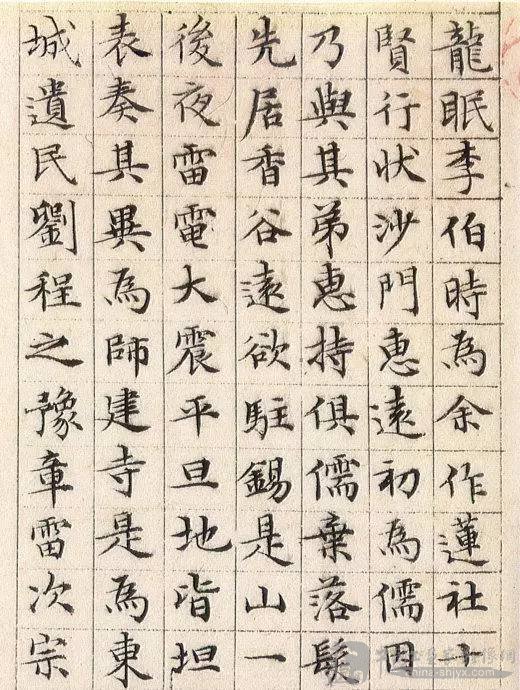 龍眠李伯時為余作蓮社十
賢行狀沙門惠遠初為儒因
乃與其弟惠持俱儒棄落髮
先居香谷遠欲駐錫是山一
後夜雷電大震平旦地皆坦
表奏其異為師建寺是為東
城遺民劉程之豫章雷次宗
china-shjyx.com